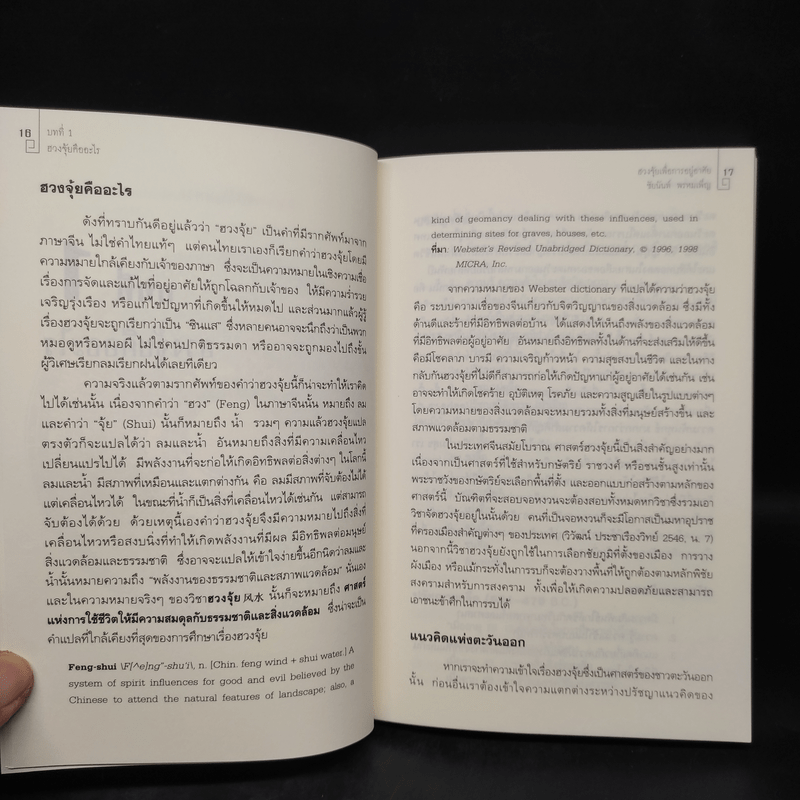 16
บทที่ 1
ฮวงจุ้ยคืออะไร
ฮวงจุ้ยคืออะไร
ดังที่ทราบกันดีอยู่แล้วว่า "ฮวงจุ้ย" เป็นคำที่มีรากศัพท์มาจาก
ภาษาจีน ไม่ใช่คำไทยแท้ๆ แต่คนไทยเราเองก็เรียกคำว่าฮวงจุ้ยโดยมี
ความหมายใกล้เคียงกับเจ้าของภาษา ซึ่งจะเป็นความหมายในเชิงความเชื่อ
เรื่องการจัดและแก้ไขที่อยู่อาศัยให้ถูกโฉลกกับเจ้าของ ให้มีความร่ำรวย
เจริญรุ่งเรือง หรือแก้ไขปัญหาที่เกิดขึ้นให้หมดไป และส่วนมากแล้วผู้รู้
เรื่องฮวงจุ้ยจะถูกเรียกว่าเป็น "ซินแส" ซึ่งหลายคนอาจจะนึกถึงว่าเป็นพวก
หมอดูหรือหมอผี ไม่ใช่คนปกติธรรมดา หรืออาจจะถูกมองไปถึงขั้น
ผู้วิเศษเรียกลมเรียกฝนได้เลยทีเดียว
ความจริงแล้วตามรากศัพท์ของคำว่าฮวงจุ้ยนี้ก็น่าจะทำให้เราคิด
ไปได้เช่นนั้น เนื่องจากคำว่า "ฮวง" (Feng) ในภาษาจีนนั้น หมายถึง ลม
และคำว่า "จุ้ย" (Shui) นั้นก็หมายถึง น้ำ รวมๆ ความแล้วฮวงจุ้ยแปล
ตรงตัวก็จะแปลได้ว่า ลมและน้ำ อันหมายถึงสิ่งที่มีความเคลื่อนไหว
เปลี่ยนแปรไปได้ มีพลังงานที่จะก่อให้เกิดอิทธิพลต่อสิ่งต่างๆ ในโลกนี้
ลมและน้ำ มีสภาพที่เหมือนและแตกต่างกัน คือ ลมมีสภาพที่จับต้องไม่ได้
แต่เคลื่อนไหวได้ ในขณะที่น้ำก็เป็นสิ่งที่เคลื่อนไหวได้เช่นกัน แต่สามารถ
จับต้องได้ด้วย ด้วยเหตุนี้เองคำว่าฮวงจุ้ยจึงมีความหมายไปถึงสิ่งที่
เคลื่อนไหวหรือสงบนิ่งที่ทำให้เกิดพลังงานที่มีผล มีอิทธิพลต่อมนุษย์
สิ่งแวดล้อมและธรรมชาติ ซึ่งอาจจะแปลให้เข้าใจง่ายขึ้นอีกนิดว่าลมและ
น้ำนั้นหมายความถึง "พลังงานของธรรมชาติและสภาพแวดล้อม" นั่นเอง
และในความหมายจริงๆ ของวิชาฮวงจุ้ย 风水 นั้นก็จะหมายถึง ศาสตร์
แห่งการใช้ชีวิตให้มีความสมดุลกับธรรมชาติและสิ่งแวดล้อม ซึ่งน่าจะเป็น
คำแปลที่ใกล้เคียงที่สุดของการศึกษาเรื่องฮวงจุ้ย
Feng-shui \F[^e]ng"-shu'i\, n. [Chin. feng wind + shui water.] A
system of spirit influences for good and evil believed by the
Chinese to attend the natural features of landscape; also, a
ฮวงจุ้ยเพื่อการอยู่อาศัย
17
kind of geomancy dealing with these influences, used in
determining sites for graves, houses, etc.
ที่มา Webster's Revised Unabridged Dictionary, © 1996, 1998
MICRA, Inc.
จากความหมายของ Webster dictionary ที่แปลได้ความว่าฮวงจุ้ย
คือ ระบบความเชื่อของจีนเกี่ยวกับจิตวิญญาณของสิ่งแวดล้อม ซึ่งมีทั้ง
ด้านดีและร้ายที่มีอิทธิพลต่อบ้าน ได้แสดงให้เห็นถึงพลังของสิ่งแวดล้อม
ที่มีอิทธิพลต่อผู้อยู่อาศัย อันหมายถึงอิทธิพลทั้งในด้านที่จะส่งเสริมให้ดีขึ้น
คือมีโชคลาภ บารมี ความเจริญก้าวหน้า ความสุขสงบในชีวิต และในทาง
กลับกันฮวงจุ้ยที่ไม่ดีก็สามารถก่อให้เกิดปัญหาแก่ผู้อยู่อาศัยได้เช่นกัน เช่น
อาจจะทำให้เกิดโชคร้าย อุบัติเหตุ โรคภัย และความสูญเสียในรูปแบบต่างๆ
โดยความหมายของสิ่งแวดล้อมจะหมายรวมทั้งสิ่งที่มนุษย์สร้างขึ้น และ
สภาพแวดล้อมตามธรรมชาติ
ในประเทศจีนสมัยโบราณ ศาสตร์ฮวงจุ้ยนี้เป็นสิ่งสำคัญอย่างมาก
เนื่องจากเป็นศาสตร์ที่ใช้สำหรับกษัตริย์ ราชวงศ์ หรือชนชั้นสูงเท่านั้น
พระราชวังของกษัตริย์จะเลือกพื้นที่ตั้ง และออกแบบก่อสร้างตามหลักของ
ศาสตร์นี้ บัณฑิตที่จะสอบจอหงวนจะต้องสอบทั้งหมดหกวิชาซึ่งรวมเอา
วิชาจัดฮวงจุ้ยอยู่ในนั้นด้วย คนที่เป็นจอหงวนก็จะมีโอกาสเป็นมหาอุปราช
ที่ครองเมืองสำคัญต่างๆ ของประเทศ (วิวัฒน์ ประชาเรืองวิทย์ 2546, น. 7)
นอกจากนี้วิชาฮวงจุ้ยยังถูกใช้ในการเลือกชัยภูมิที่ตั้งของเมือง การวาง
ผังเมือง หรือแม้กระทั่งในการรบก็จะต้องวางพื้นที่ให้ถูกต้องตามหลักพิชัย
สงครามสำหรับการสงคราม ทั้งเพื่อให้เกิดความปลอดภัยและสามารถ
เอาชนะข้าศึกในการรบได้
แนวคิดแห่งตะวันออก
หากเราจะทำความเข้าใจเรื่องฮวงจุ้ยซึ่งเป็นศาสตร์ของชาวตะวันออก
นั้น ก่อนอื่นเราต้องเข้าใจความแตกต่างระหว่างปรัชญาแนวคิดของ